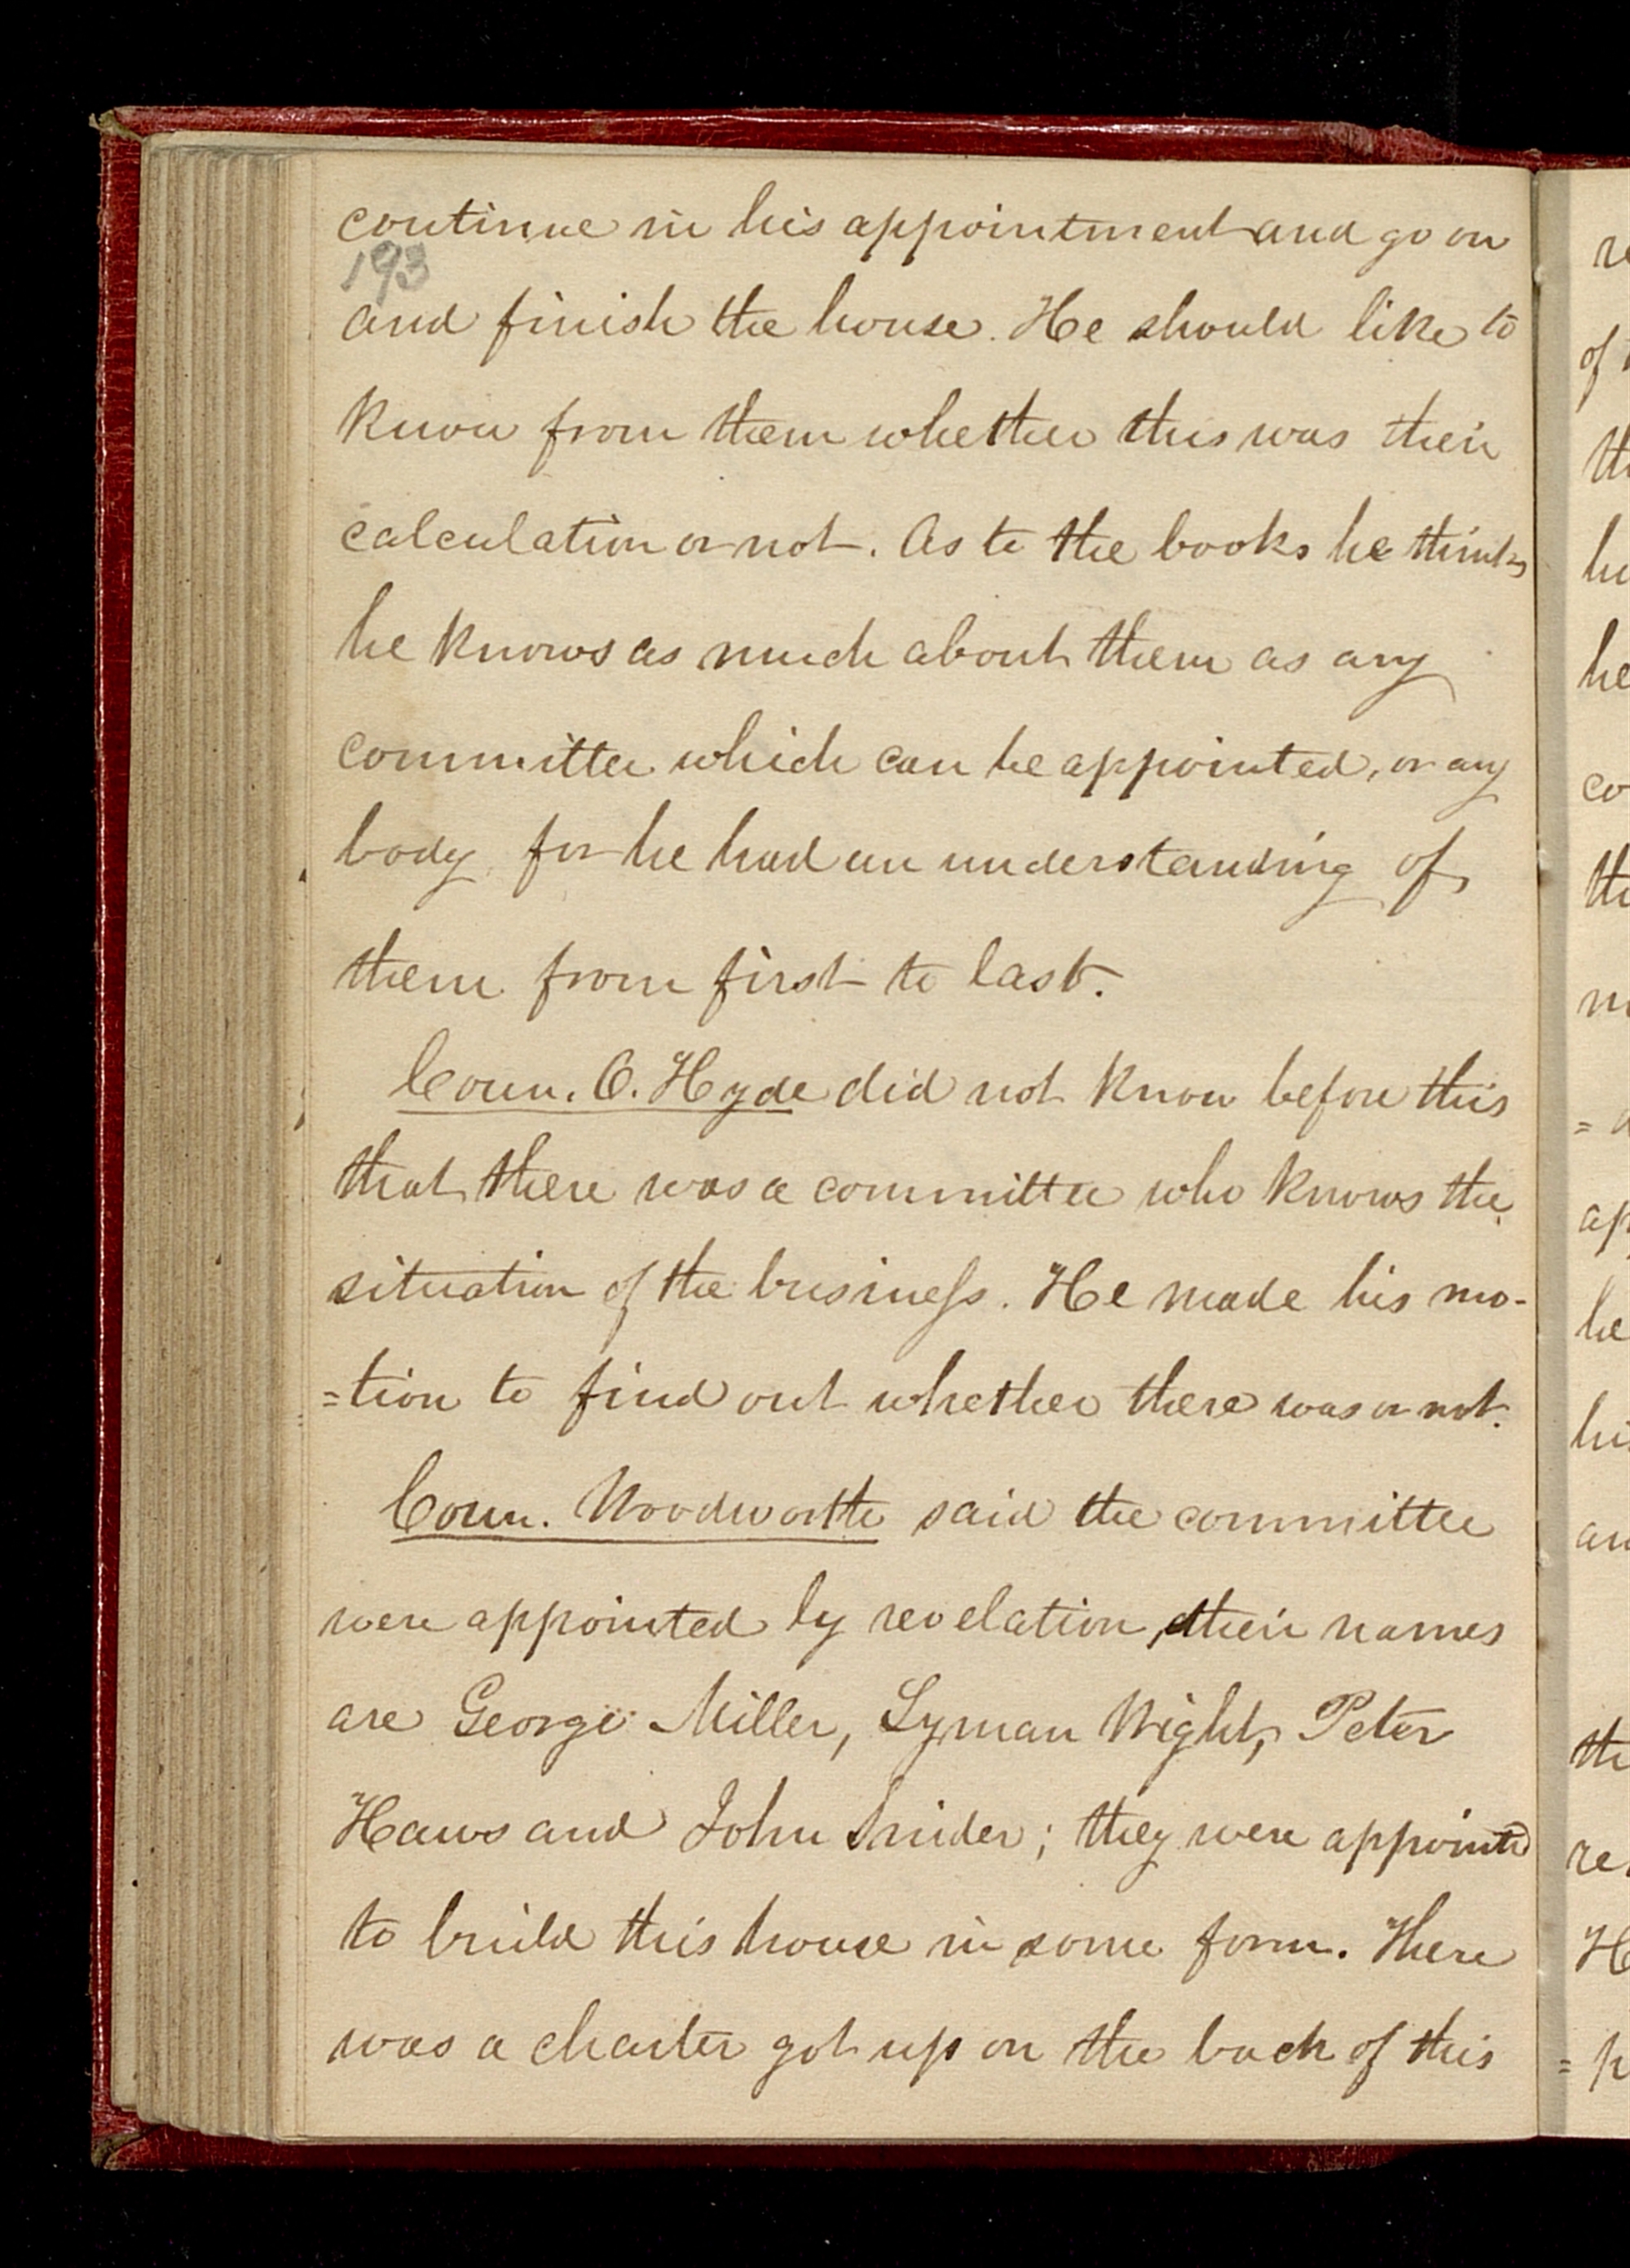 continue in his appointment and go on
193
and finish the house. He should like to
know from them whether this was their
calculation or not. As to the books he thinks
he knows as much about them as any
committee which can be appointed, or any
body for he had an understanding of
them from first to last.
Coun. O. Hyde did not know before this
that there was a committee who knows the
situation of the business. He made his mo-
=tion to find out whether there was or not.
Coun. Woodworth said the committee
were appointed by revelation, their names
are George Miller, Lyman Wight, Peter
Haws and John Snider; they were appointed
to build this house in some form. There
was a charter got up on the back of this